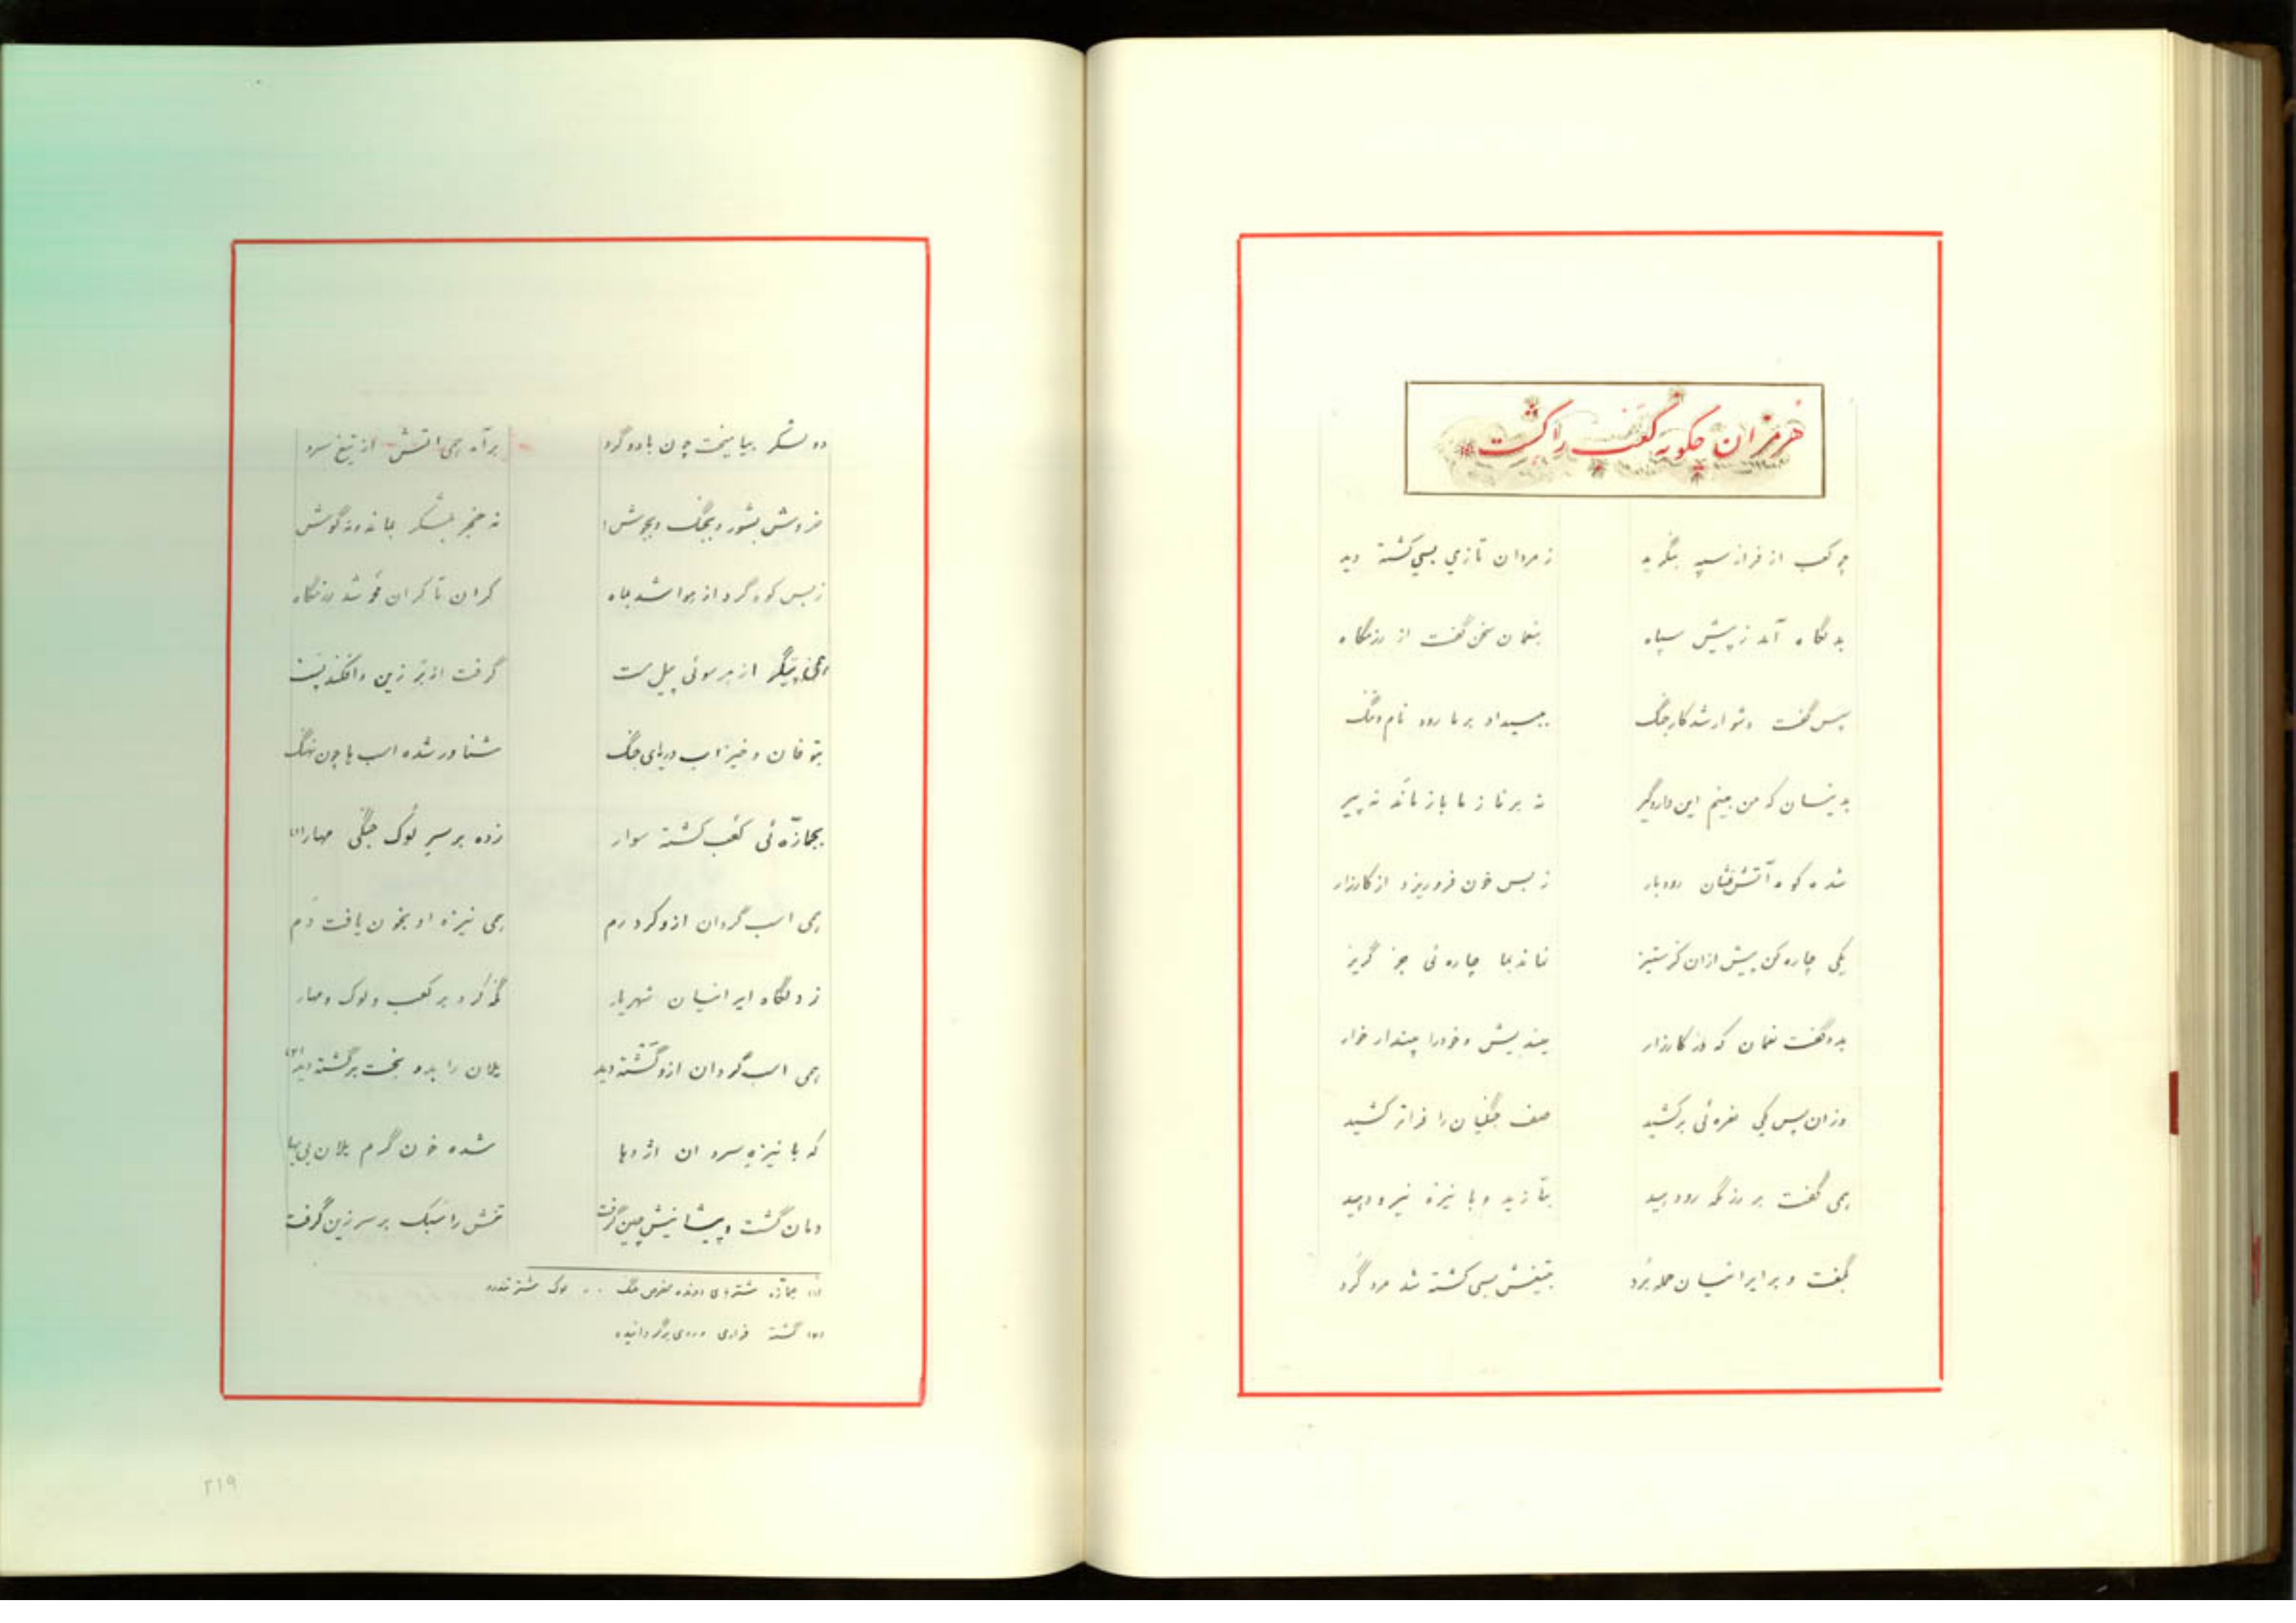 هرمزان چگونه کعب را کشت
چو کعب از فراز سپه بنگرید ز مردان تازی بسی کشته دید
بدنگاه آمد ز پیش سپاه بنعمان سخن گفت از رزمگاه
سپس گفت دشوار شد کار جنگ بیداد بر ما رود نام و ننگ
بدینسان که من بینم این دار و گیر نه برنا ز ما باز ماند نه پیر
شده کوه آتش فشان رودبار ز بس خون فرو ریزد از کارزار
یکی چاره کن پیش ازان کز ستیز نماند بما چاره ئی جز گریز
بدو گفت نعمان که در کارزار میندیش و خود را مپندار خوار
وزان پس یکی نعره ئی برکشید صف جنگیان را فراتر کشید
همی گفت بر رزمگه رود بتازید و با نیزه نیرو دهید
بگفت و بر ایرانیان حمله برد بتیغش بسی کشته شد مرد گرد
دو لشکر بیامیخت چون باد و گرد برآمد همی آتش از تیغ سرد
خروش بشور و بجنگ و بجوش نه خنجر بماند و نه گوش
ز بس کوه گرد از هوا شد بماه کران تا کران شد رزمگاه
از هر سوئی پیل مست گرفت از بر زین و افکند پست
بتوفان و خیزاب دریای جنگ شناور شده اسب ها چون نهنگ
بجمازه ئی کعب گشته سوار زده بر سر لوک جنگی مهار (۱)
همی اسب گردان ازو کرد رم همی نیزه او بخون یافت دم
ز دنگاه ایرانیان شهریار نگه کرد بر کعب و لوک و مهار
همی اسب گردان ازو گشته دید یلان را بدو بخت برگشته دید (۲)
که با نیزه سرد ان اژدها شده خون گرم یلان بی بها
دمان گشت و پیشانیش چین گرفت تنش را سبک بر سر زین گرفت
(۱) جمازه شتر دونده جنگ .. لوک شتر
(۲) گشته فراری و روی برگردانیده
۲۱۹